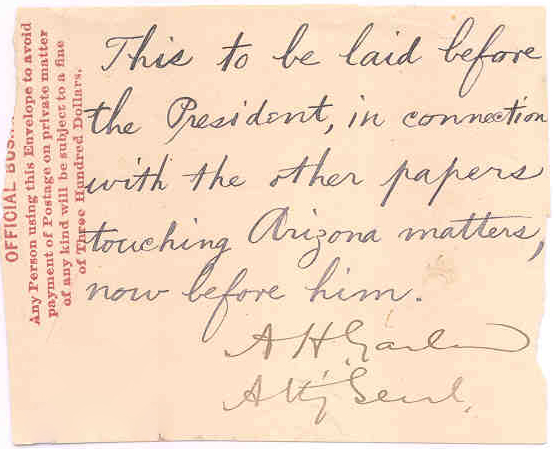 This to be laid before
the President, in connection
with the other papers
touching Arizona matters,
now before him.
A H Garland
Atty Genl.
OFFICIAL BUS
Any Person using this Envelope to avoid
payment of Postage on private matter
of any kind will be subject to a fine
of Three Hundred Dollars.